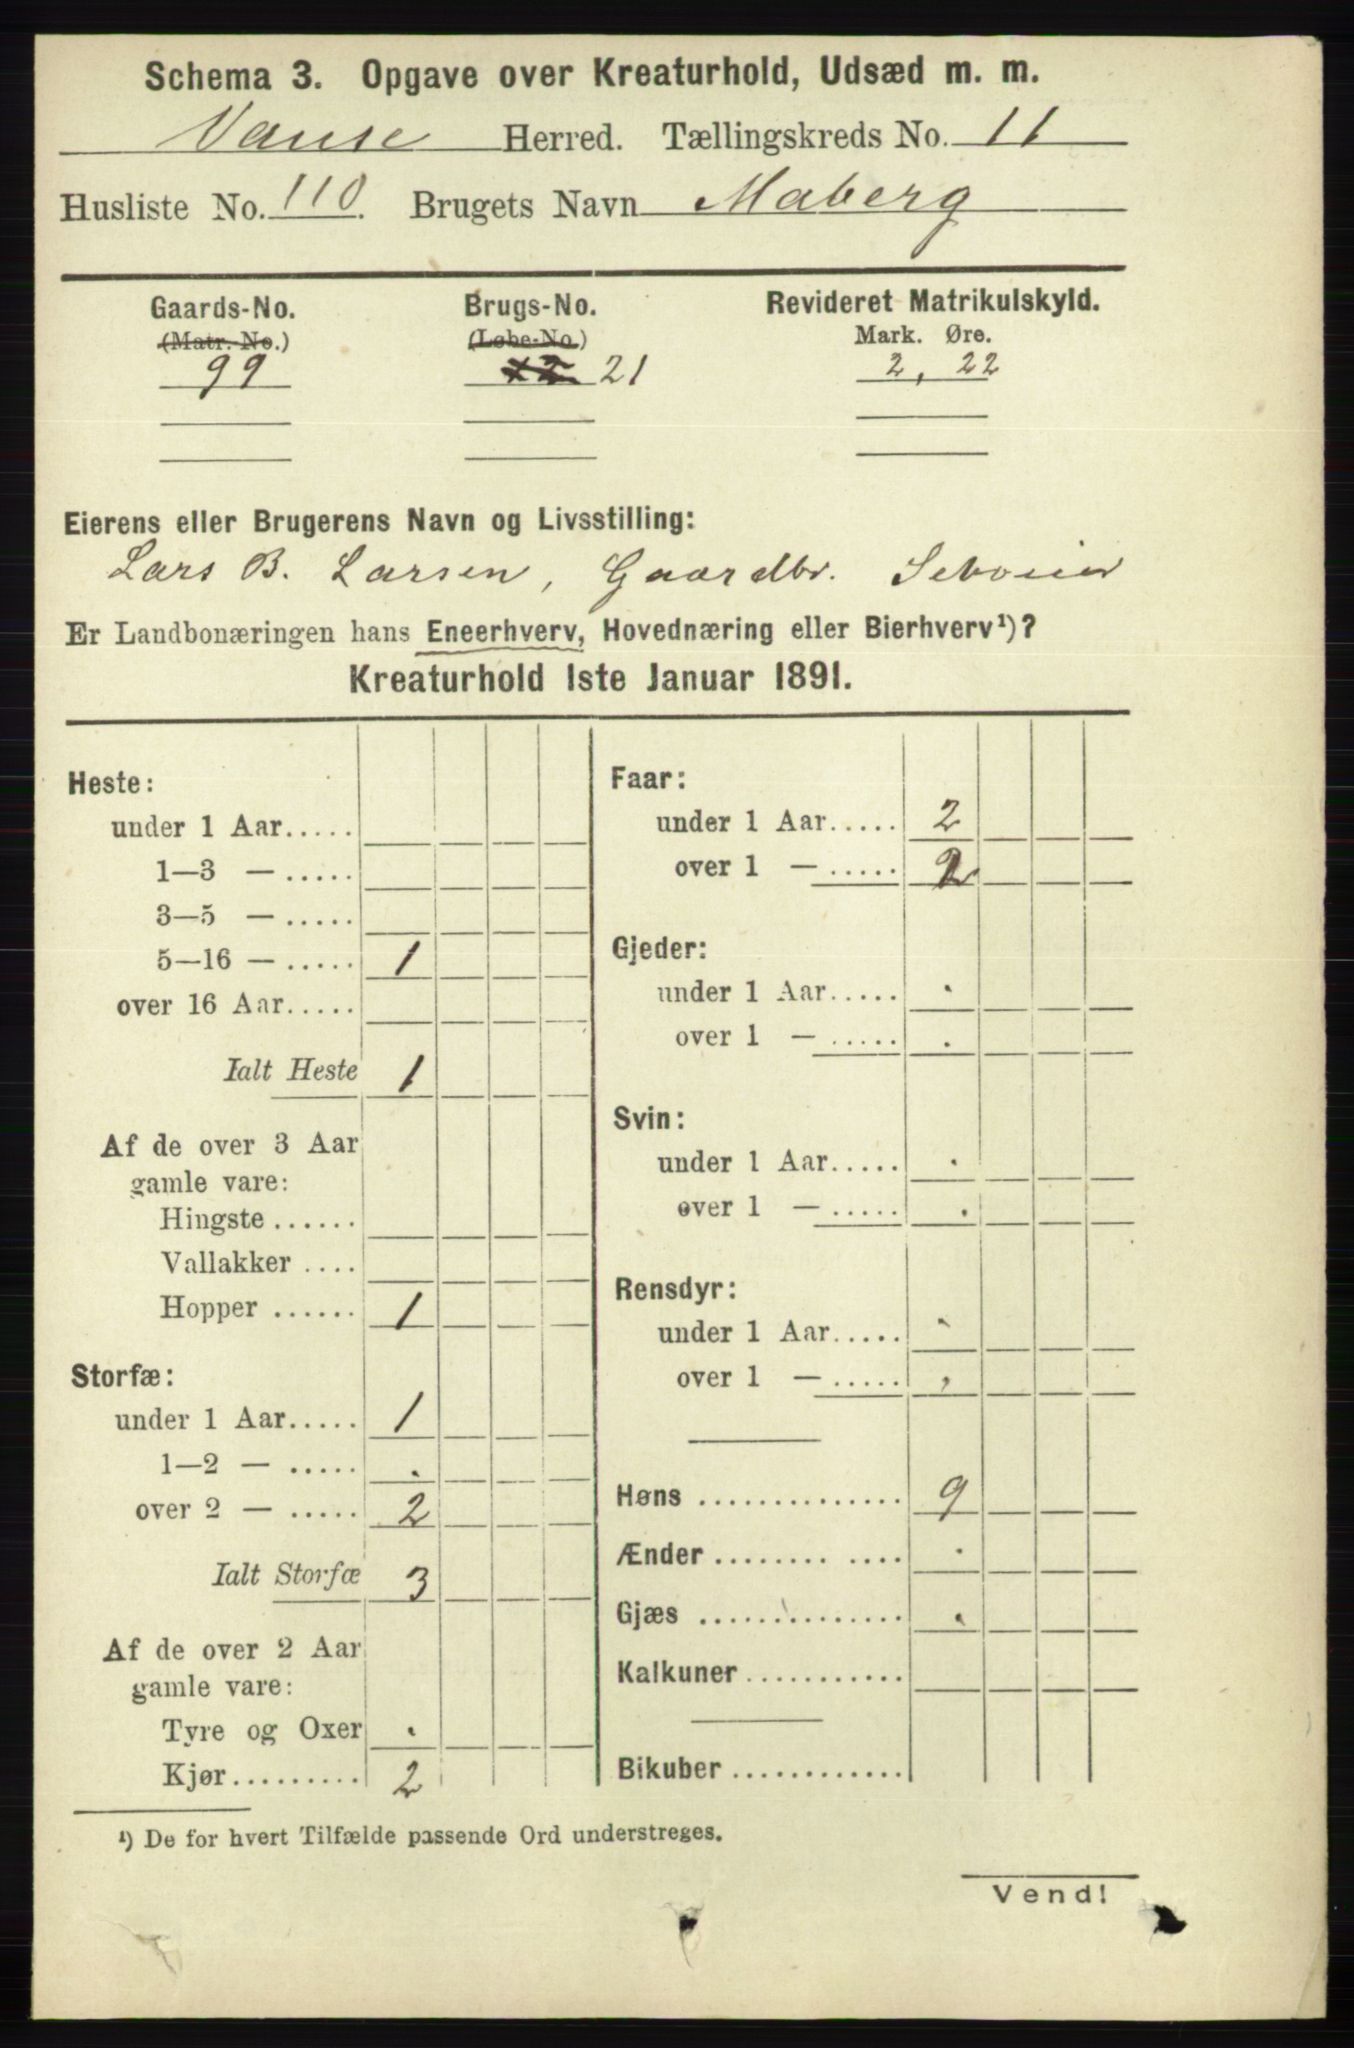 Schema 3. Opgave over Kreaturhold, Udsæd m. m.
Vanse Herred. Tællingskreds No. 11
Husliste No. 110. Brugets Navn Maberg
Gaards-No. Brugs-No. Revideret Matrikulskyld.
(Matr.-No.) (Løbe-No.) Mark. Øre.
99 21 2, 22
Eierens eller Brugerens Navn og Livsstilling:
Lars B. Larsen, Gaardbr.
Er Landbonæringen hans Eneerhverv, Hovednæring eller Bierhverv¹)?
Kreaturhold 1ste Januar 1891.
Heste:
under 1 Aar.....
1—3 — .....
3—5 — .....
5—16 — ..... 1
over 16 Aar.....
Ialt Heste 1
Af de over 3 Aar
gamle vare:
Hingste ......
Vallakker ....
Hopper ...... 1
Storfæ:
under 1 Aar..... 1
1—2 — ..... .
over 2 — ..... 2
Ialt Storfæ 3
Af de over 2 Aar
gamle vare:
Tyre og Oxer .
Kjør......... 2
Faar:
under 1 Aar..... 2
over 1 — ..... 2
Gjeder:
under 1 Aar..... .
over 1 — ..... .
Svin:
under 1 Aar..... .
over 1 — ..... .
Rensdyr:
under 1 Aar..... .
over 1 — ..... .
Høns .............. 9
Ænder ........ .... .
Gjæs .............. .
Kalkuner ...........
Bikuber ............
¹) De for hvert Tilfælde passende Ord understreges.
Vend!